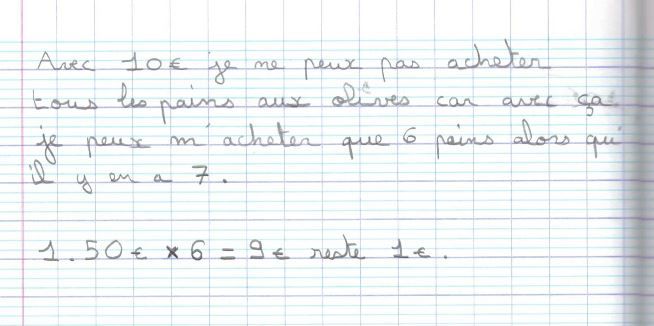 Avec 10€ je ne peux pas acheter
tous les pains aux olives car avec ça
je peux m'acheter que 6 pains alors qu'
il y en a 7.
1.50€ × 6 = 9€ reste 1€.